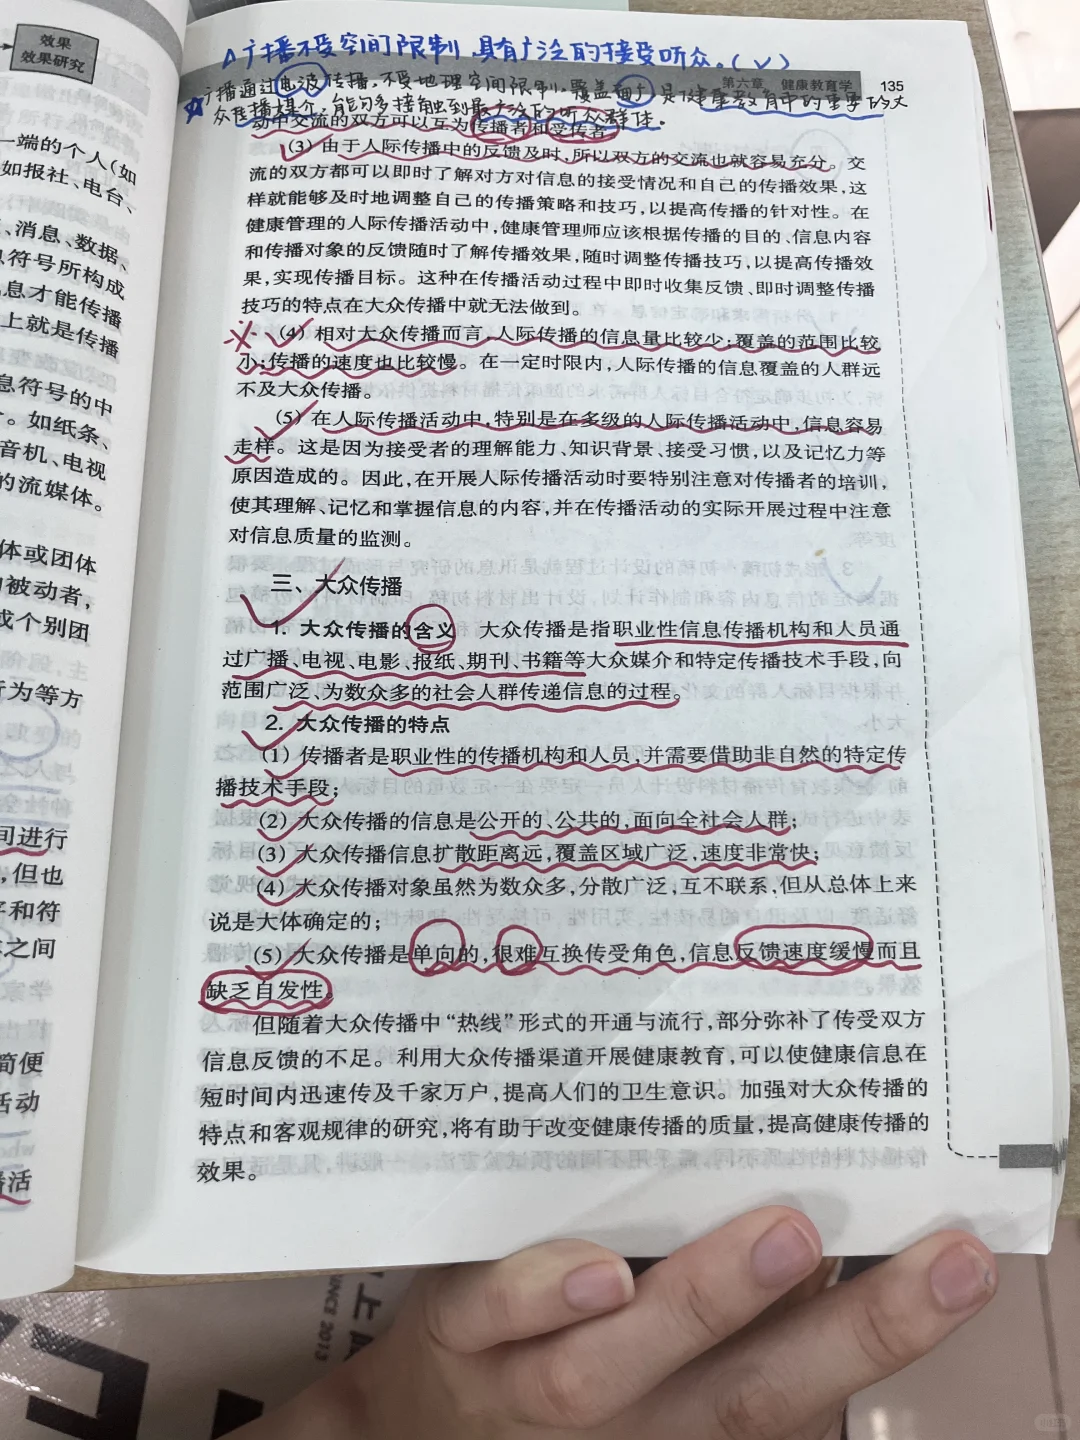 效果
效果研究
一端的个人(如
如报社、电台、
、消息、数据、
符号所构成
息才能传播
上就是传播
息符号的中
。如纸条、
音机、电视
的流媒体。
体或团体
被动者,
或个别团
行为等方
间进行
,但也
和符
之间
简便
活动
活
△广播不受空间限制,具有广泛的接受听众。(√)
第六章 健康教育学 135
广播通过电波传播,不受地理空间限制,覆盖面广,是健康教育中的重要的大
众传播媒介,能够多接触到最广泛的听众群体。
动中交流的双方可以互为传播者和受传者
(3) 由于人际传播中的反馈及时,所以双方的交流也就容易充分。交
流的双方都可以即时了解对方对信息的接受情况和自己的传播效果,这
样就能够及时地调整自己的传播策略和技巧,以提高传播的针对性。在
健康管理的人际传播活动中,健康管理师应该根据传播的目的、信息内容
和传播对象的反馈随时了解传播效果,随时调整传播技巧,以提高传播效
果,实现传播目标。这种在传播活动过程中即时收集反馈、即时调整传播
技巧的特点在大众传播中就无法做到。
(4) 相对大众传播而言,人际传播的信息量比较少;覆盖的范围比较
小;传播的速度也比较慢。在一定时限内,人际传播的信息覆盖的人群远
不及大众传播。
(5) 在人际传播活动中,特别是在多级的人际传播活动中,信息容易
走样。这是因为接受者的理解能力、知识背景、接受习惯,以及记忆力等
原因造成的。因此,在开展人际传播活动时要特别注意对传播者的培训,
使其理解、记忆和掌握信息的内容,并在传播活动的实际开展过程中注意
对信息质量的监测。
三、大众传播
1. 大众传播的含义 大众传播是指职业性信息传播机构和人员通
过广播、电视、电影、报纸、期刊、书籍等大众媒介和特定传播技术手段,向
范围广泛、为数众多的社会人群传递信息的过程。
2. 大众传播的特点
(1) 传播者是职业性的传播机构和人员,并需要借助非自然的特定传
播技术手段;
(2) 大众传播的信息是公开的、公共的,面向全社会人群;
(3) 大众传播信息扩散距离远,覆盖区域广泛,速度非常快;
(4) 大众传播对象虽然为数众多,分散广泛,互不联系,但从总体上来
说是大体确定的;
(5) 大众传播是单向的,很难互换传受角色,信息反馈速度缓慢而且
缺乏自发性。
但随着大众传播中“热线”形式的开通与流行,部分弥补了传受双方
信息反馈的不足。利用大众传播渠道开展健康教育,可以使健康信息在
短时间内迅速传及千家万户,提高人们的卫生意识。加强对大众传播的
特点和客观规律的研究,将有助于改变健康传播的质量,提高健康传播的
效果。